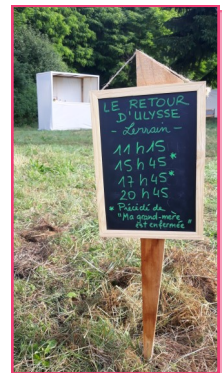 LE RETOUR
D'ULYSSE
- Lerrain -
11h15
15h45*
17h45*
20h45
* Précédé de
"Ma grand-mère
est enfermée"